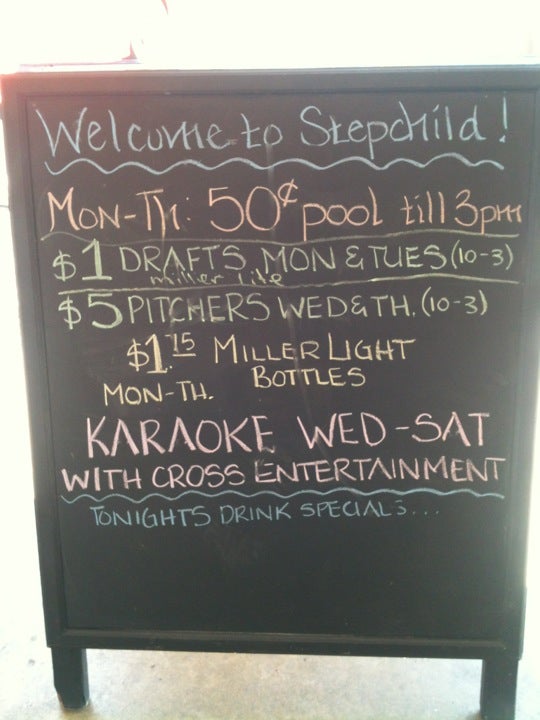 Welcome to Stepchild!
MON-TH: 50¢ pool till 3pm
$1 DRAFTS MON & TUES (10-3)
Miller Lite
$5 PITCHERS WED & TH. (10-3)
$1.75 MILLER LIGHT
MON-TH. BOTTLES
KARAOKE WED-SAT
WITH CROSS ENTERTAINMENT
TONIGHTS DRINK SPECIALS...